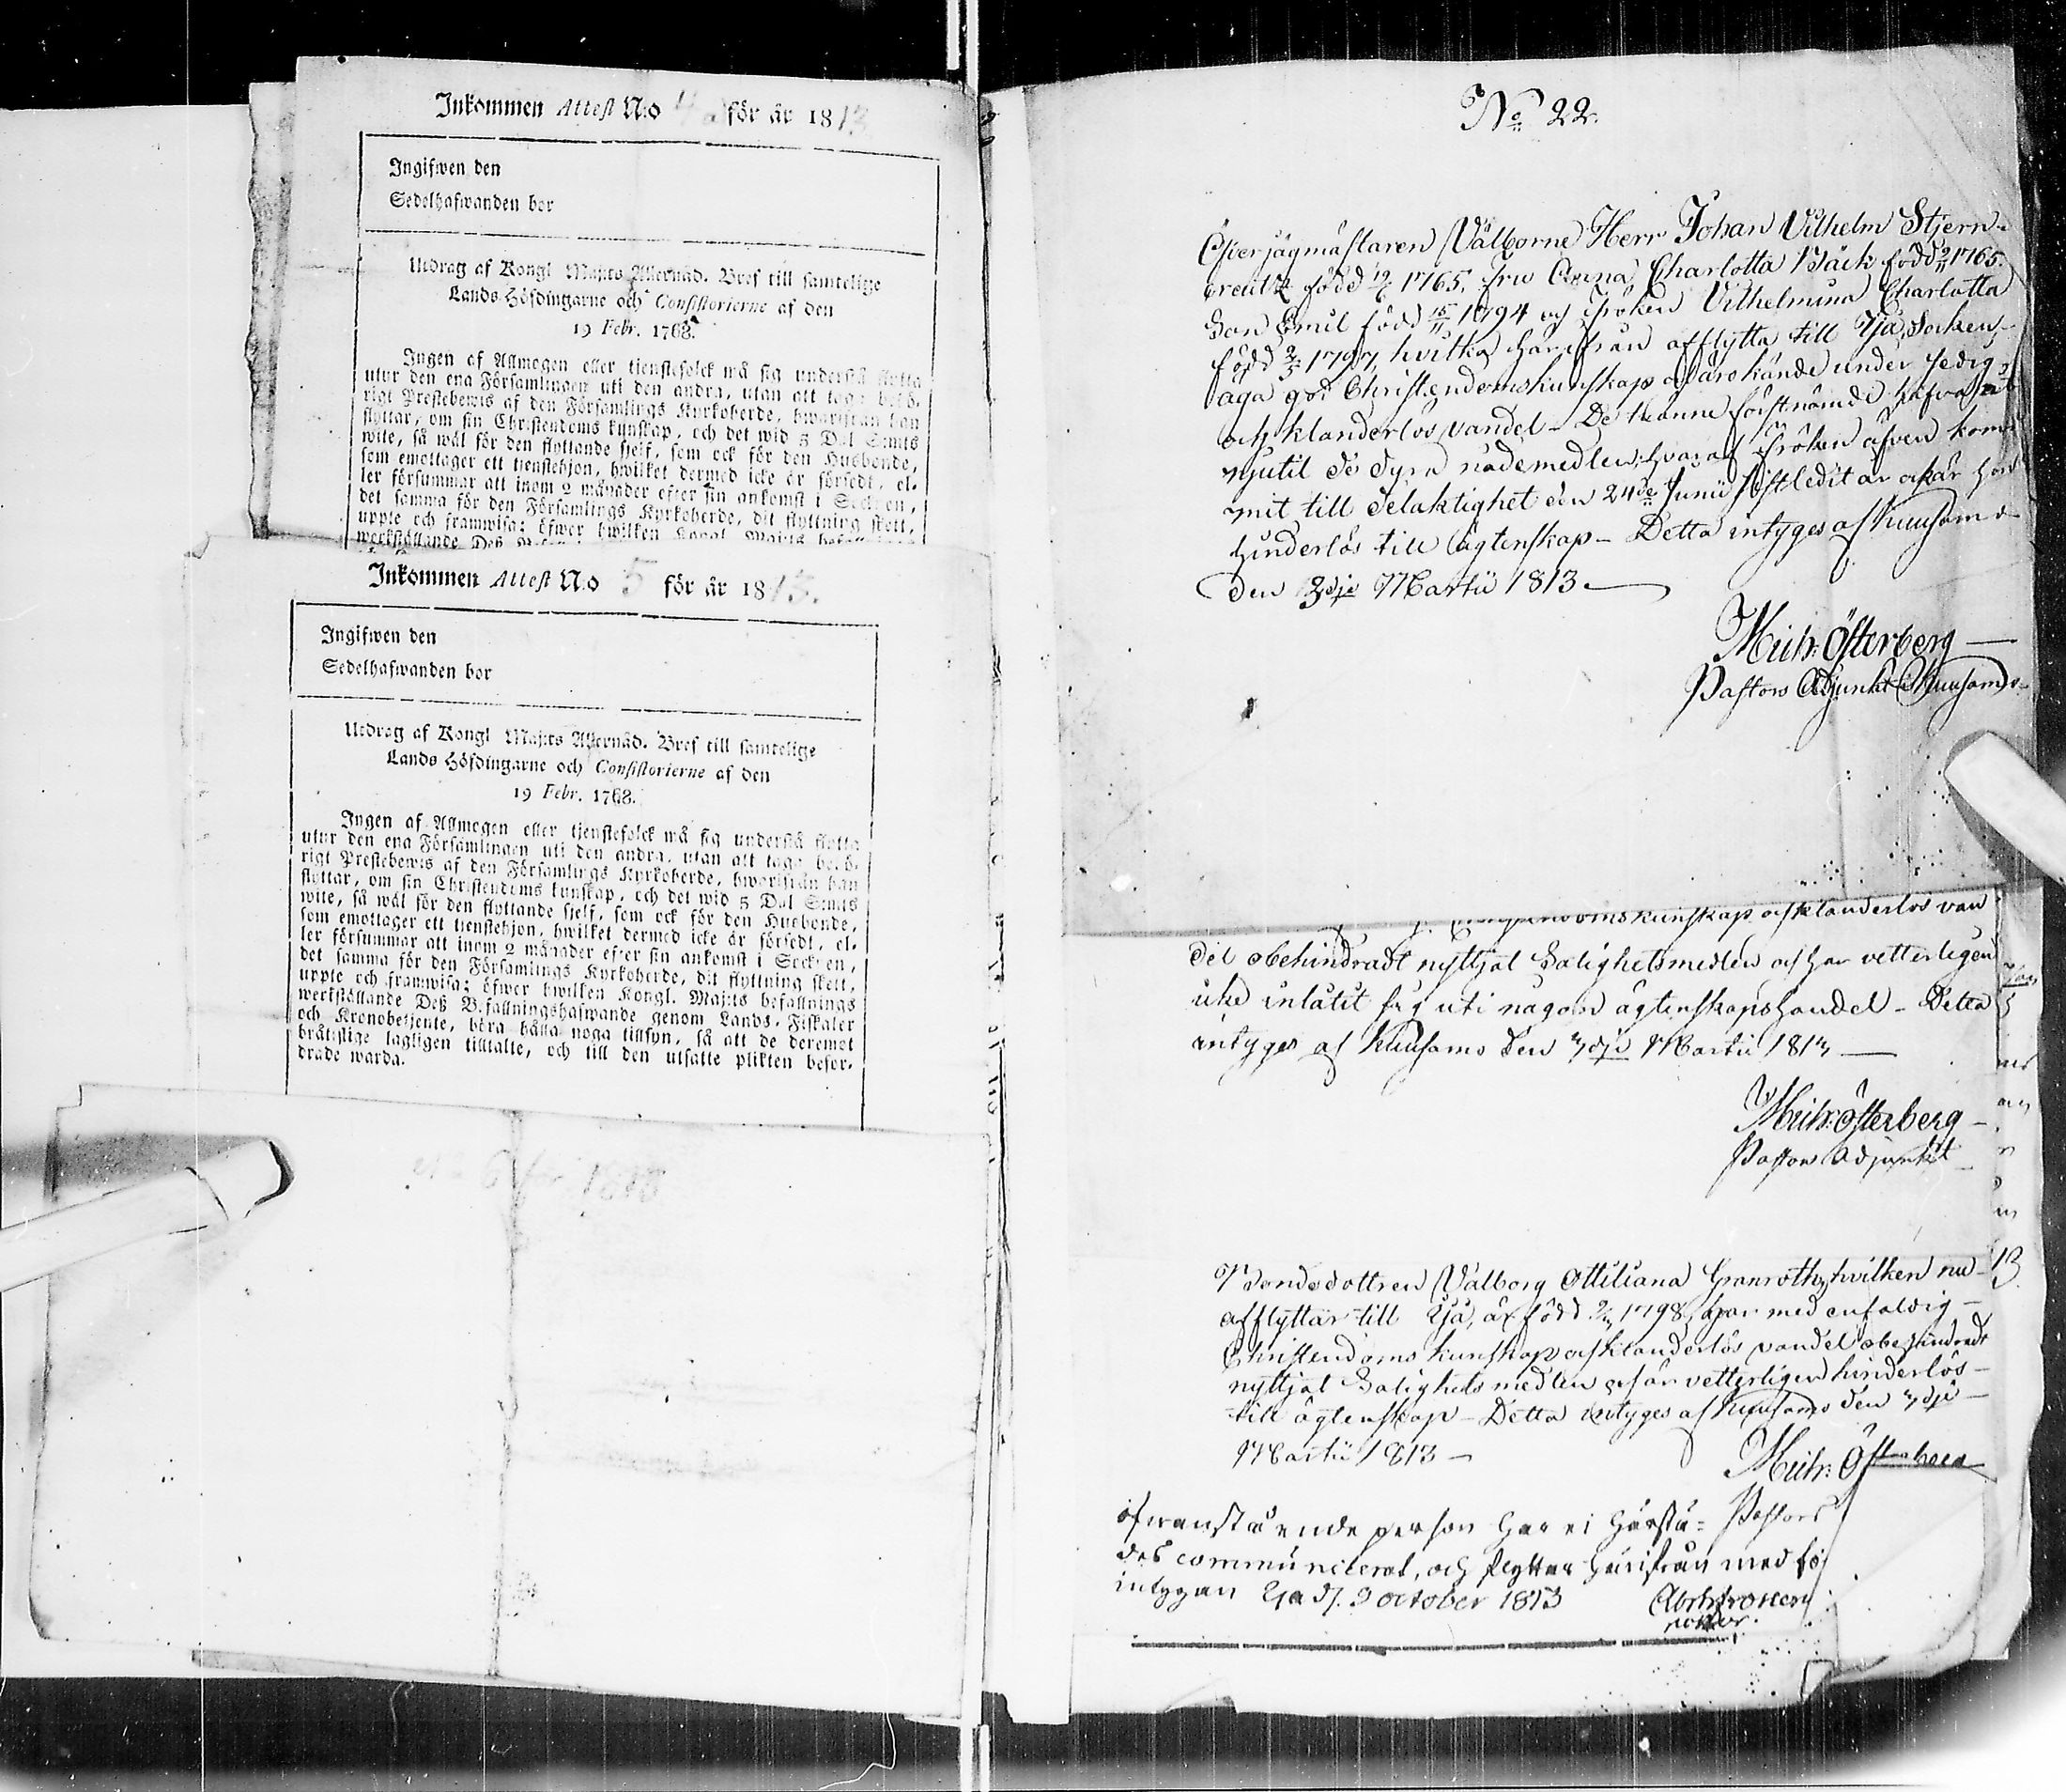 Inkommen Attest N:o 4 för år 1813
Ingifwen den
Sedelhafwanden bor
Utdrag af Kongl Maj:ts Allernåd. Bref till samtelige
Lands Höfdingarne och Consistorierne af den
19 Febr. 1768.
Ingen af Allmogen eller tjenstefolck må sig understå flytta
utur den ena Församlingen uti den andra, utan att taga behö-
rigt Prestebewis af den Församlings Kyrkoherde, hwarifrån han
flyttar, om sin Christendoms kunskap, och det wid 5 Dal. Smits
wite, så wäl för den flyttande sjelf, som ock för den Husbonde,
som emottager ett tjenstehjon, hwilket dermed icke är försedt, el-
ler försummar att inom 2 månader efter sin ankomst i Socknen,
det samma för den Församlings Kyrkoherde, dit flyttning skett,
uppte och framwisa; öfwer hwilken Kongl. Maj:ts
werkställande Deß
Inkommen Attest N:o 5 för år 1813.
Ingifwen den
Sedelhafwanden bor
Utdrag af Kongl Maj:ts Allernåd. Bref till samtelige
Lands Höfdingarne och Consistorierne af den
19 Febr. 1768.
Ingen af Allmogen eller tjenstefolck må sig understå flytta
utur den ena Församlingen uti den andra, utan att taga behö-
rigt Prestebewis af den Församlings Kyrkoherde, hwarifrån han
flyttar, om sin Christendoms kunskap, och det wid 5 Dal Smits
wite, så wäl för den flyttande sjelf, som ock för den Husbonde,
som emottager ett tjenstehjon, hwilket dermed icke är försedt, el-
ler försummar att inom 2 månader efter sin ankomst i Socknen,
det samma för den Församlings Kyrkoherde, dit flyttning skett,
uppte och framwisa; öfwer hwilken Kongl. Maj:ts befallnings
werkställande Deß Befallningshafwande genom Lands-Fiskaler
och Kronobetjente, böra hålla noga tillsyn, så att de deremot
brätslige lagligen tilltalte, och till den utsatte plikten befor-
drade warda.
N:o 6 för 1813
No 22.
Öfverjägmästaren Välborne Herr Johan Vilhelm Stjern-
creutz född 19/6 1765. Fru Anna Charlotta Bäck född 9/11 1765.
Son Emil född 15/11 1794 och Fröken Vilhelmina Charlotta
född 2/5 1797, hvilka härifrån afflytta till Ijå Socken,
äga god Christendomskunskap och äro kände under sedig
och klanderlös vandel - De trenne förstnämde hafva
njutit de dyra nådemedlen, hvaraf Fröken äfven kom-
mit till delaktighet den 24de Junii sistledit år och är hon
hinderlös till ägtenskap - Detta intyges af Kuusamo
den 3dje Martii 1813 -
Mich: Österberg -
Pastors Adjunkt i Kuusamo -
kunskap och klanderlös van
del obehindradt nyttjat Salighetsmedlen och har vetterligen
icke inlåtit sig uti någon ägtenskapshandel - Detta
intyges af Kuusamo den 3dje Martii 1813 -
Mich: Österberg -
Pastors Adjunkt
Bondedottren Valborg Ottiliana Granroth, hvilken nu
afflyttar till Ijå, är född 1798, har med enfaldig -
Christendoms kunskap och klanderlös vandel obehindradt
nyttjat Salighets medlen och är vetterligen hinderlös -
till ägtenskap - Detta intyges af Kuusamo den 3dje -
Martii 1813 -
Mich: Österberg
Pastors
ofvanstående person har ei härstä=
des communicerat, och flyttar härifrån med fö
intygan Ija d. 3 october 1813